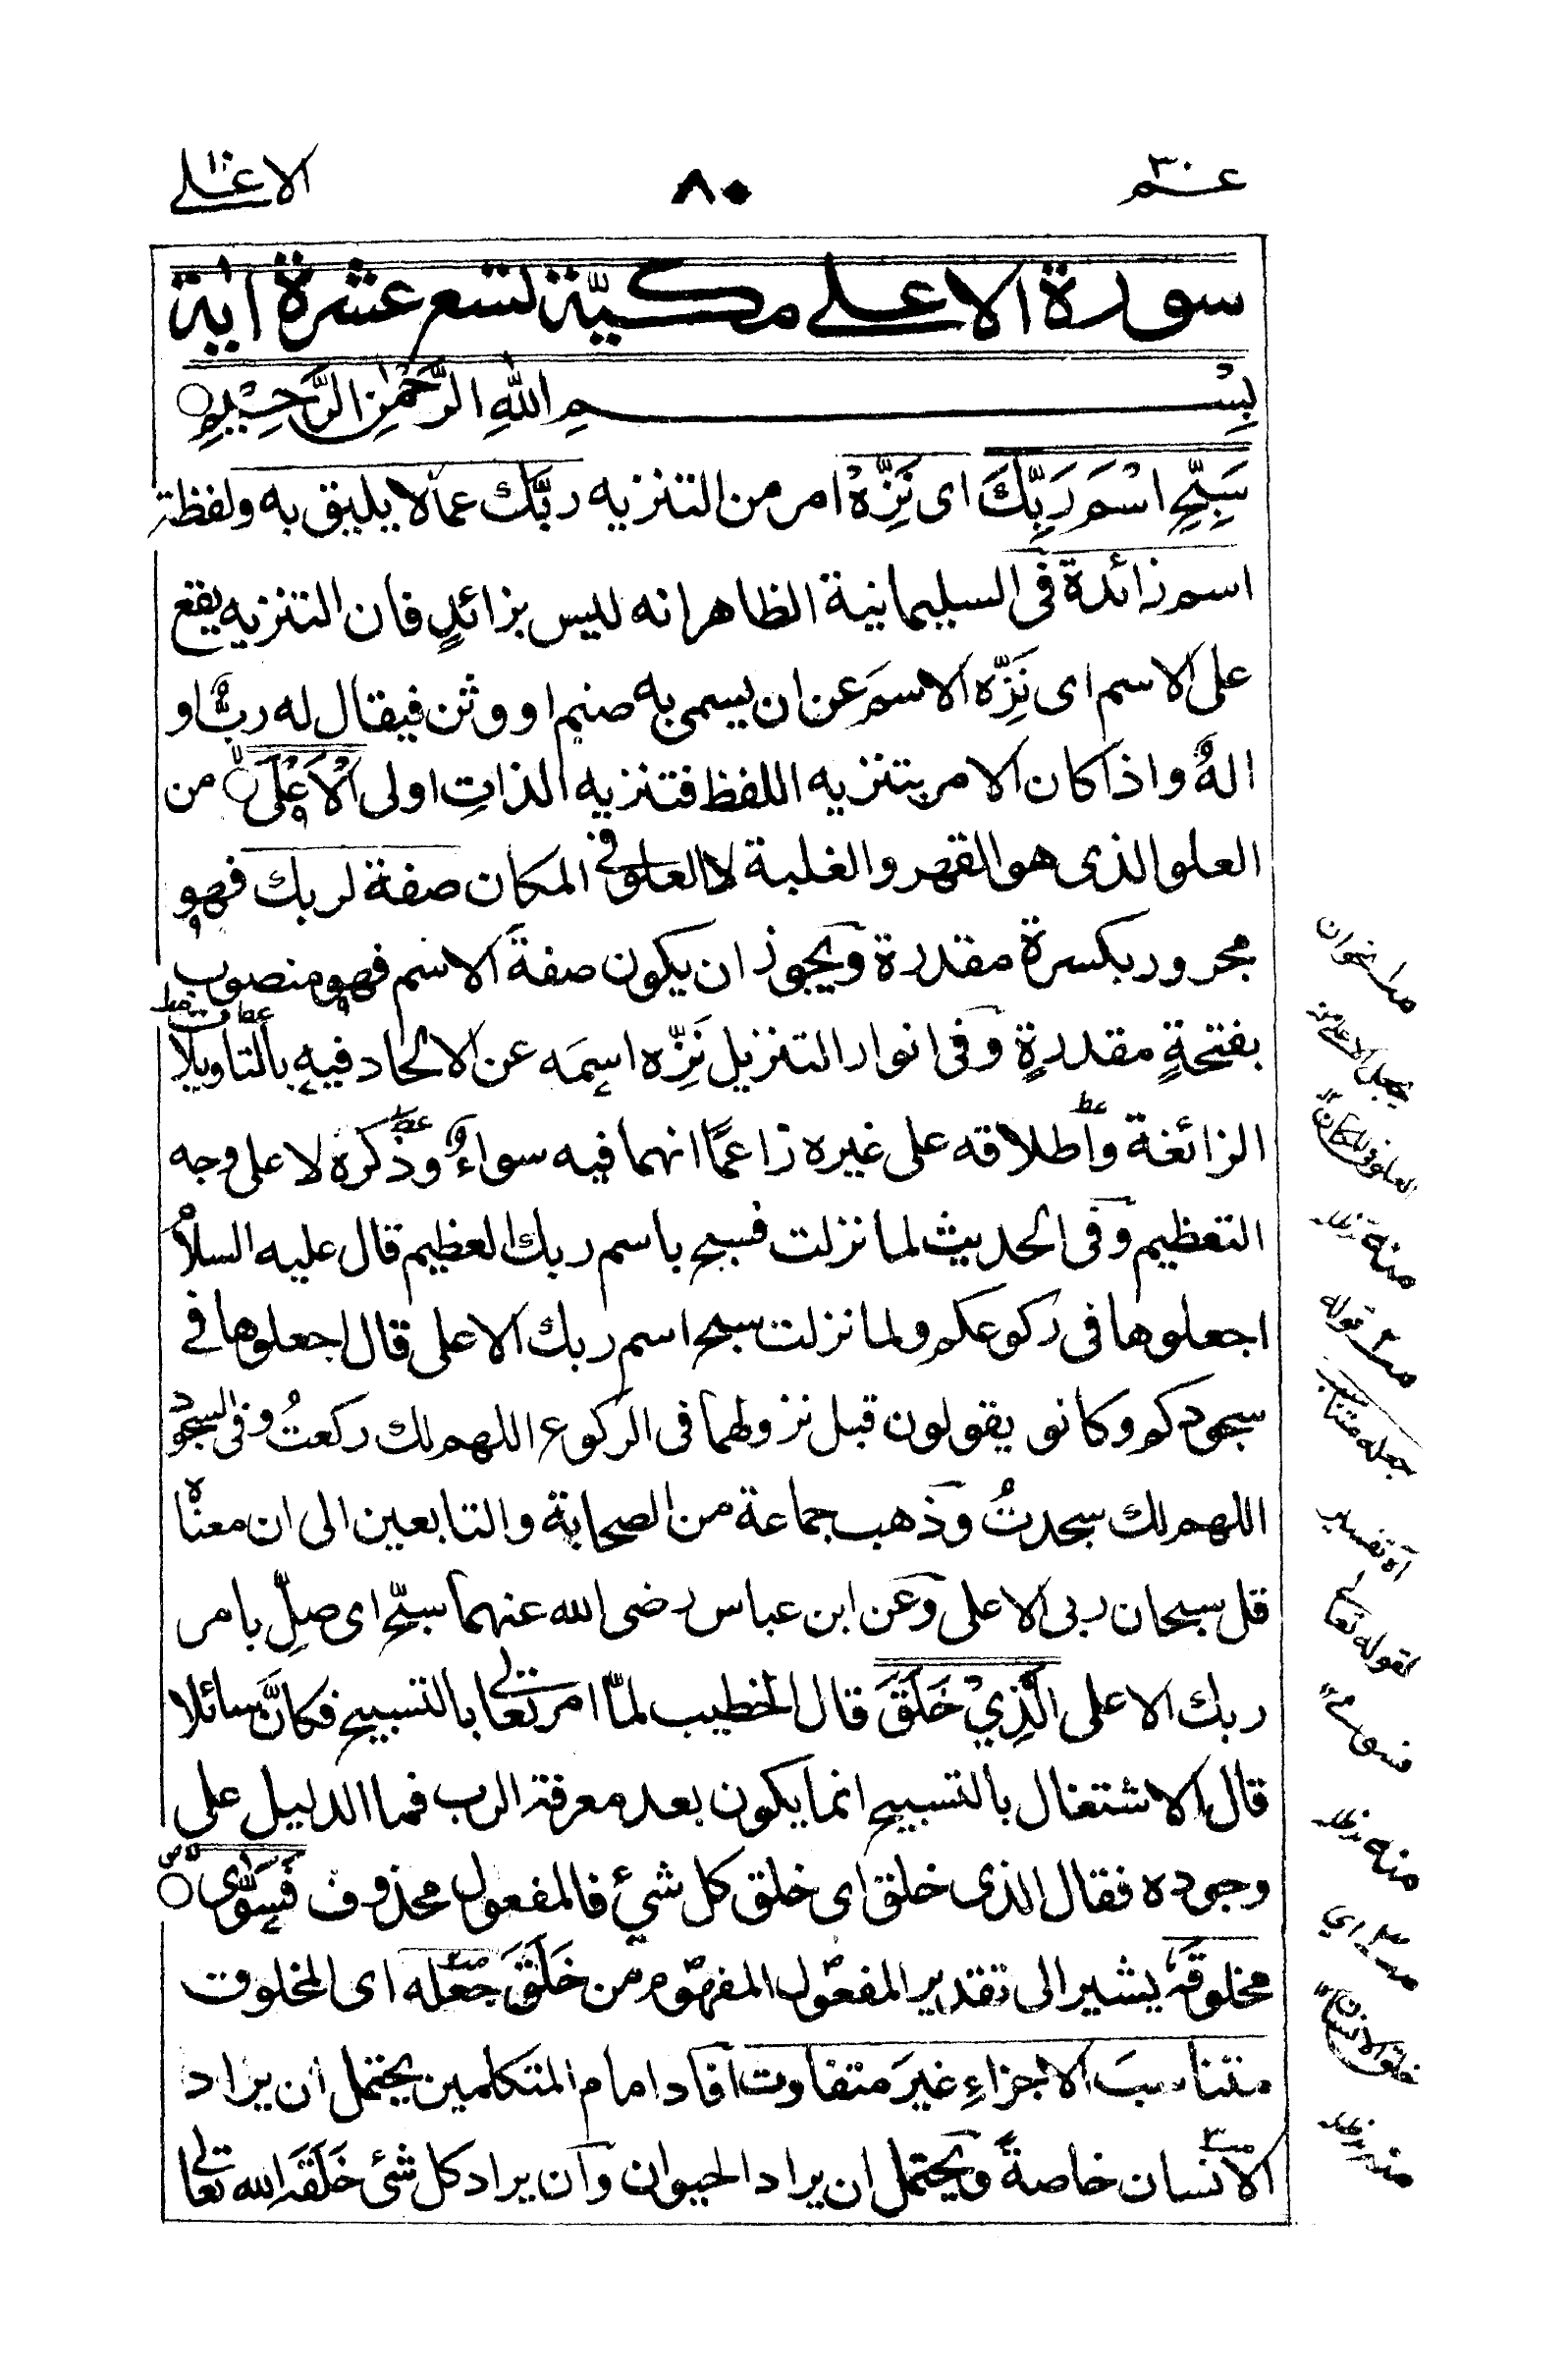 عم ٣٠
٨٠
الاعلى
سورة الاعلى مكيّة تسع عشرة اية
بِسْمِ اللهِ الرَّحْمٰنِ الرَّحِيْمِ
سَبِّحِ اسْمَ رَبِّكَ اى نَزِّهْ امر من التنزيه ربَّك عما لا يليق به ولفظة
اسم زائدة فى السليمانية الظاهر انه ليس بزائدٍ فان التنزيه يقع
على الاسم اى نَزِّه الاسمَ عن ان يسمى به صنم او وثن فيقال له ربٌّ او
الهٌ واذا كان الامر بتنزيه اللفظ فتنزيه الذاتِ اولى الْاَعْلَى من
العلو الذى هو القهر والغلبة لا العلو فى المكان صفة لربك فهو
مجرور بكسرة مقدرة ويجوز ان يكون صفةَ الاسم فهو منصوب
بفتحةٍ مقدرةٍ وفى انوار التنزيل نَزِّه اسمَه عن الالحاد فيه بالتاويلا
الزائغة واطلاقه على غيره زاعمًا انهما فيه سواءٌ وذكره لا على وجه
التعظيم وفى الحديث لما نزلت فسبح باسم ربك العظيم قال عليه السلام
اجعلوها فى ركوعكم ولما نزلت سبح اسم ربك الاعلى قال اجعلوها فى
سجودكم وكانو يقولون قبل نزولهما فى الركوع اللهم لك ركعتُ وفى السجود
اللهم لك سجدتُ وذهب جماعة من الصحابة والتابعين الى ان معناه
قل سبحان ربى الاعلى وعن ابن عباس رضى الله عنهما سبّح اى صلِّ بامر
ربك الاعلى الَّذِيْ خَلَقَ قال الخطيب لمّا امر تعالى بالتسبيح فكانَّ سائلا
قال الاشتغال بالتسبيح انما يكون بعد معرفة الرب فما الدليل على
وجوده فقال الذى خلق اى خلق كل شئ فالمفعول محذوف فَسَوّٰى
مخلوقَه يشير الى تقدير المفعول المفهوم من خَلَقَ جعله اى المخلوق
متناسبَ الاجزاءِ غيرَ متفاوت افاد امام المتكلمين يحتمل ان يراد
الانسان خاصةً ويحتمل ان يراد الحيوان وان يراد كل شئ خَلَقَه الله تعالى
العلو فى المكان
منه
قوله
جعله متناسب
اه تفسير
لقوله تعالى
فسوى
منه
اى
خلق الانسان
منه